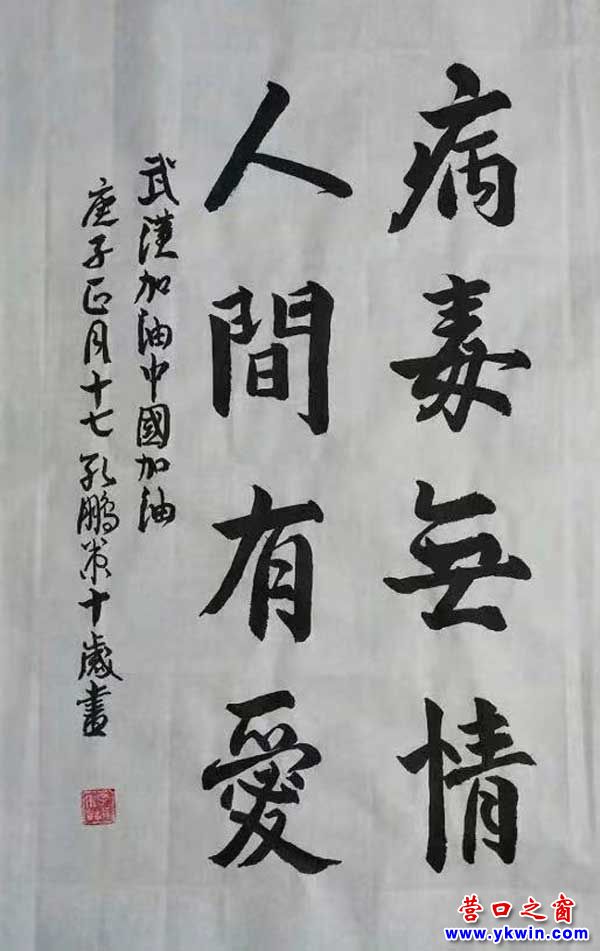 病毒無情
人間有愛
武漢加油中國加油
庚子正月十七孔鵬策十歲書
营口之窗
www.ykwin.com